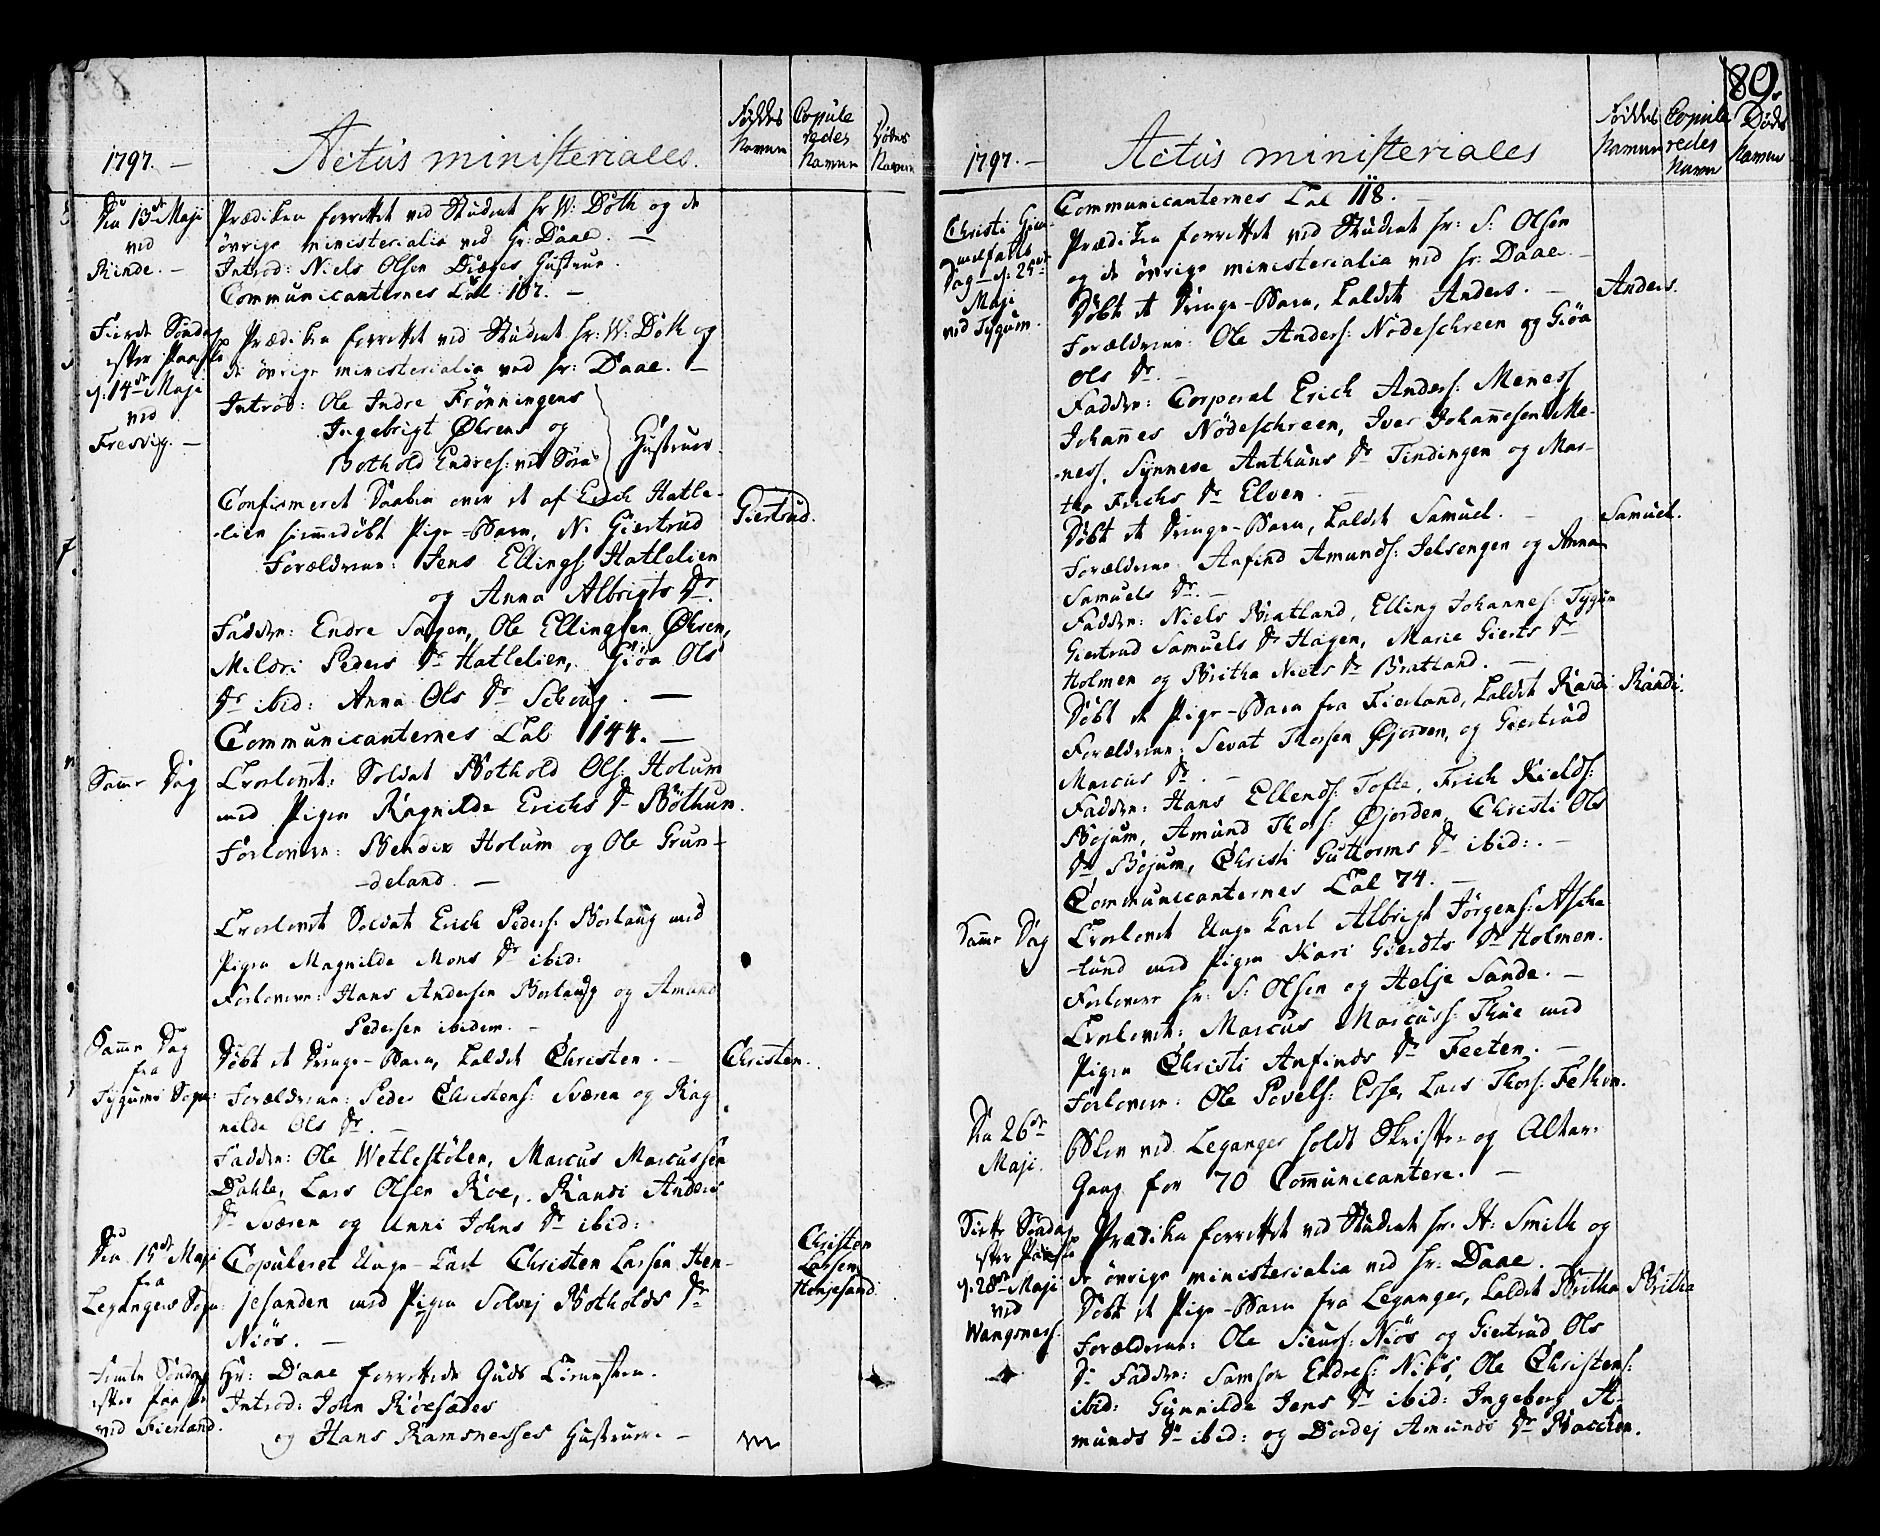 1797. —
Actus ministeriales.
Føddes Navne
Copuleredes Navne
Dødes Navne
Den 13de Maji
ved
Rinde. —
Prædiken forrettet ved Student Hr W: Dóth og de
øvrige ministerialia ved Hr: Daae. —
Introd: Niels Olsen Hustrue.
Communicanternes Tal 107. —
Fierde Søndag
efter Paaske
d: 14de Maji
ved
Fresvig. —
Prædiken forrettet ved Student Hr: W: Dóth og
de øvrige ministerialia ved Hr: Daae. —
Introd: Ole Indre Frønningens
Ingebrigt Øhrens og
Bothold Endres: ved
Hustruer.
Confirmeret Daaben over et af Erich Hatle-
lien hiemmedøbt Pige-Barn, N. Giertrud
Giertrud.
Forældrene: Jens Ellings: Hatlelien
og Anna Albrigts Dr.
Faddere: Endre Ole Ellingsen Øhren,
Mildri Peders Dr Hatlelien, Giøa Ols
Dr ibid: Anna Ols Dr —
Communicanternes Tal 144. —
Samme Dag
Trolovet: Soldat Bothold Ols: Holum
med Pigen Ragnilde Erichs Dr Böthun.
Forlovere: Bendix Holum og Ole Grun-
-deland. —
Trolovet Soldat Erich Peders: Borlaug med
Pigen Magnilde Mons Dr ibid:
Forlovere: Hans Andersen Borlaug og Amund
Pedersen ibidem. —
Samme Dag
fra
Tygums Sogn:
Døbt et Drenge-Barn, kaldet Christen. —
Christen.
Forældrene: Peder Christens: Sværen og Rag
nilde Ols Dr. —
Faddere: Ole Wetlestölen, Marcus Marcussen
Dahle, Lars Olsen Roe, Randi Anders
Dr Sværen og Anni Johns Dr ibid:
Den 15de Maji
fra
Legangers Sogn:
Copuleret Unge-Karl Christen Larsen Hen-
jesanden med Pigen Solvej Botholds Dr
Niøs. —
Christen
Larsen
Henjesand.
Femte Søndag
efter Paaske
ved Fierland.
Hr: Daae forrettede Guds Tienesten.
Introd: John
og Hans Ramsnesses Hustruer. —
89.
1797. —
Actus ministeriales
Føddes Navne
Copuleredes Navne
Dødes Navne
Communicanternes Tal 118. —
Christi Him-
melfarts
Dag d: 25de
Maji
ved Tygum.
Prædiken forrettet ved Student Hr: S: Olsen
og de øvrige ministerialia ved Hr: Daae. —
Døbt et Drenge-Barn, kaldet Anders. —
Anders.
Forældrene: Ole Anders: Nødeschreen og Giøa
Ols Dr. —
Faddere: Corporal Erich Anders: Meness
Johannes Nødeschreen, Iver Johannesen Me-
-ness, Synneve Anthuns Dr Tindingen og Mar-
tha Erichs Dr Elven. —
Døbt et Drenge-Barn, kaldet Samuel. —
Samuel.
Forældrene Anfind Amunds: Jelsengen og Anna
Samuels Dr. —
Faddere: Niels Bratland, Elling Johannes: Tygum
Giertrud Samuels Dr Hagen, Marie Gierts Dr
Holmen og Britha Niels Dr Bratland. —
Døbt et Pige-Barn fra Fierland, kaldet Randi
Randi.
Forældrene: Sevat Thorsen Øjorden, og Giertrud
Marcus Dr. —
Faddere: Hans Ellends: Tofte, Erich Kields:
Bojum, Amund Thors: Øjorden, Christi Ols
Dr Bojum, Christi Guttorms Dr ibid: —
Communicanternes Tal 74. —
Samme Dag
Trolovet Unge Karl Albrigt Jørgens: Ascha
-lund med Pigen Kari Gierdts Dr Holmen.
Forlovere Hr: S: Olsen og Helje Sande. —
Trolovet: Marcus Marcuss: Thue med
Pigen Christi Anfinds Dr Feeten. —
Forlovere: Ole Povels: Esse, Lars Thors: Fethen.
Den 26de
Maji.
Blev ved Leganger holdt Skrifte- og Alter-
Gang for 70 Communicantere. —
Siette Søndag
efter Paaske
d: 28de Maji
ved
Wangsness.
Prædiken forrettet ved Student Hr: H: Smith og
de øvrige ministerialia ved Hr: Daae.
Døbt et Pige-Barn fra Leganger, kaldet Britha
Britha
Forældrene: Ole Siurs: Niös og Giertrud Ols
Dr Faddere: Samson Endres: Niös, Ole Christens:
ibid: Gunnilde Jens Dr ibid: Ingeborg A-
munds Dr ibid: og Dordej Amunds Dr Bacchen.